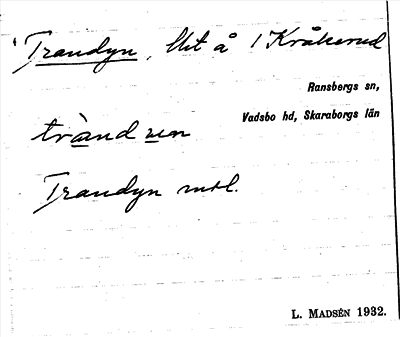 Trandyn, lht å 1 Kråkerud
Ransbergs sn,
Vadsbo hd, Skaraborgs län
Trandyn mtl.
L. MADSÉN 1932.